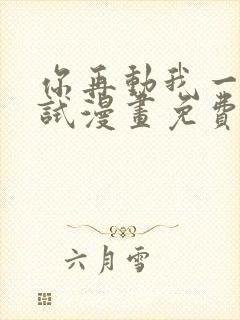 你再動我一
試漫畫免費
六月雪